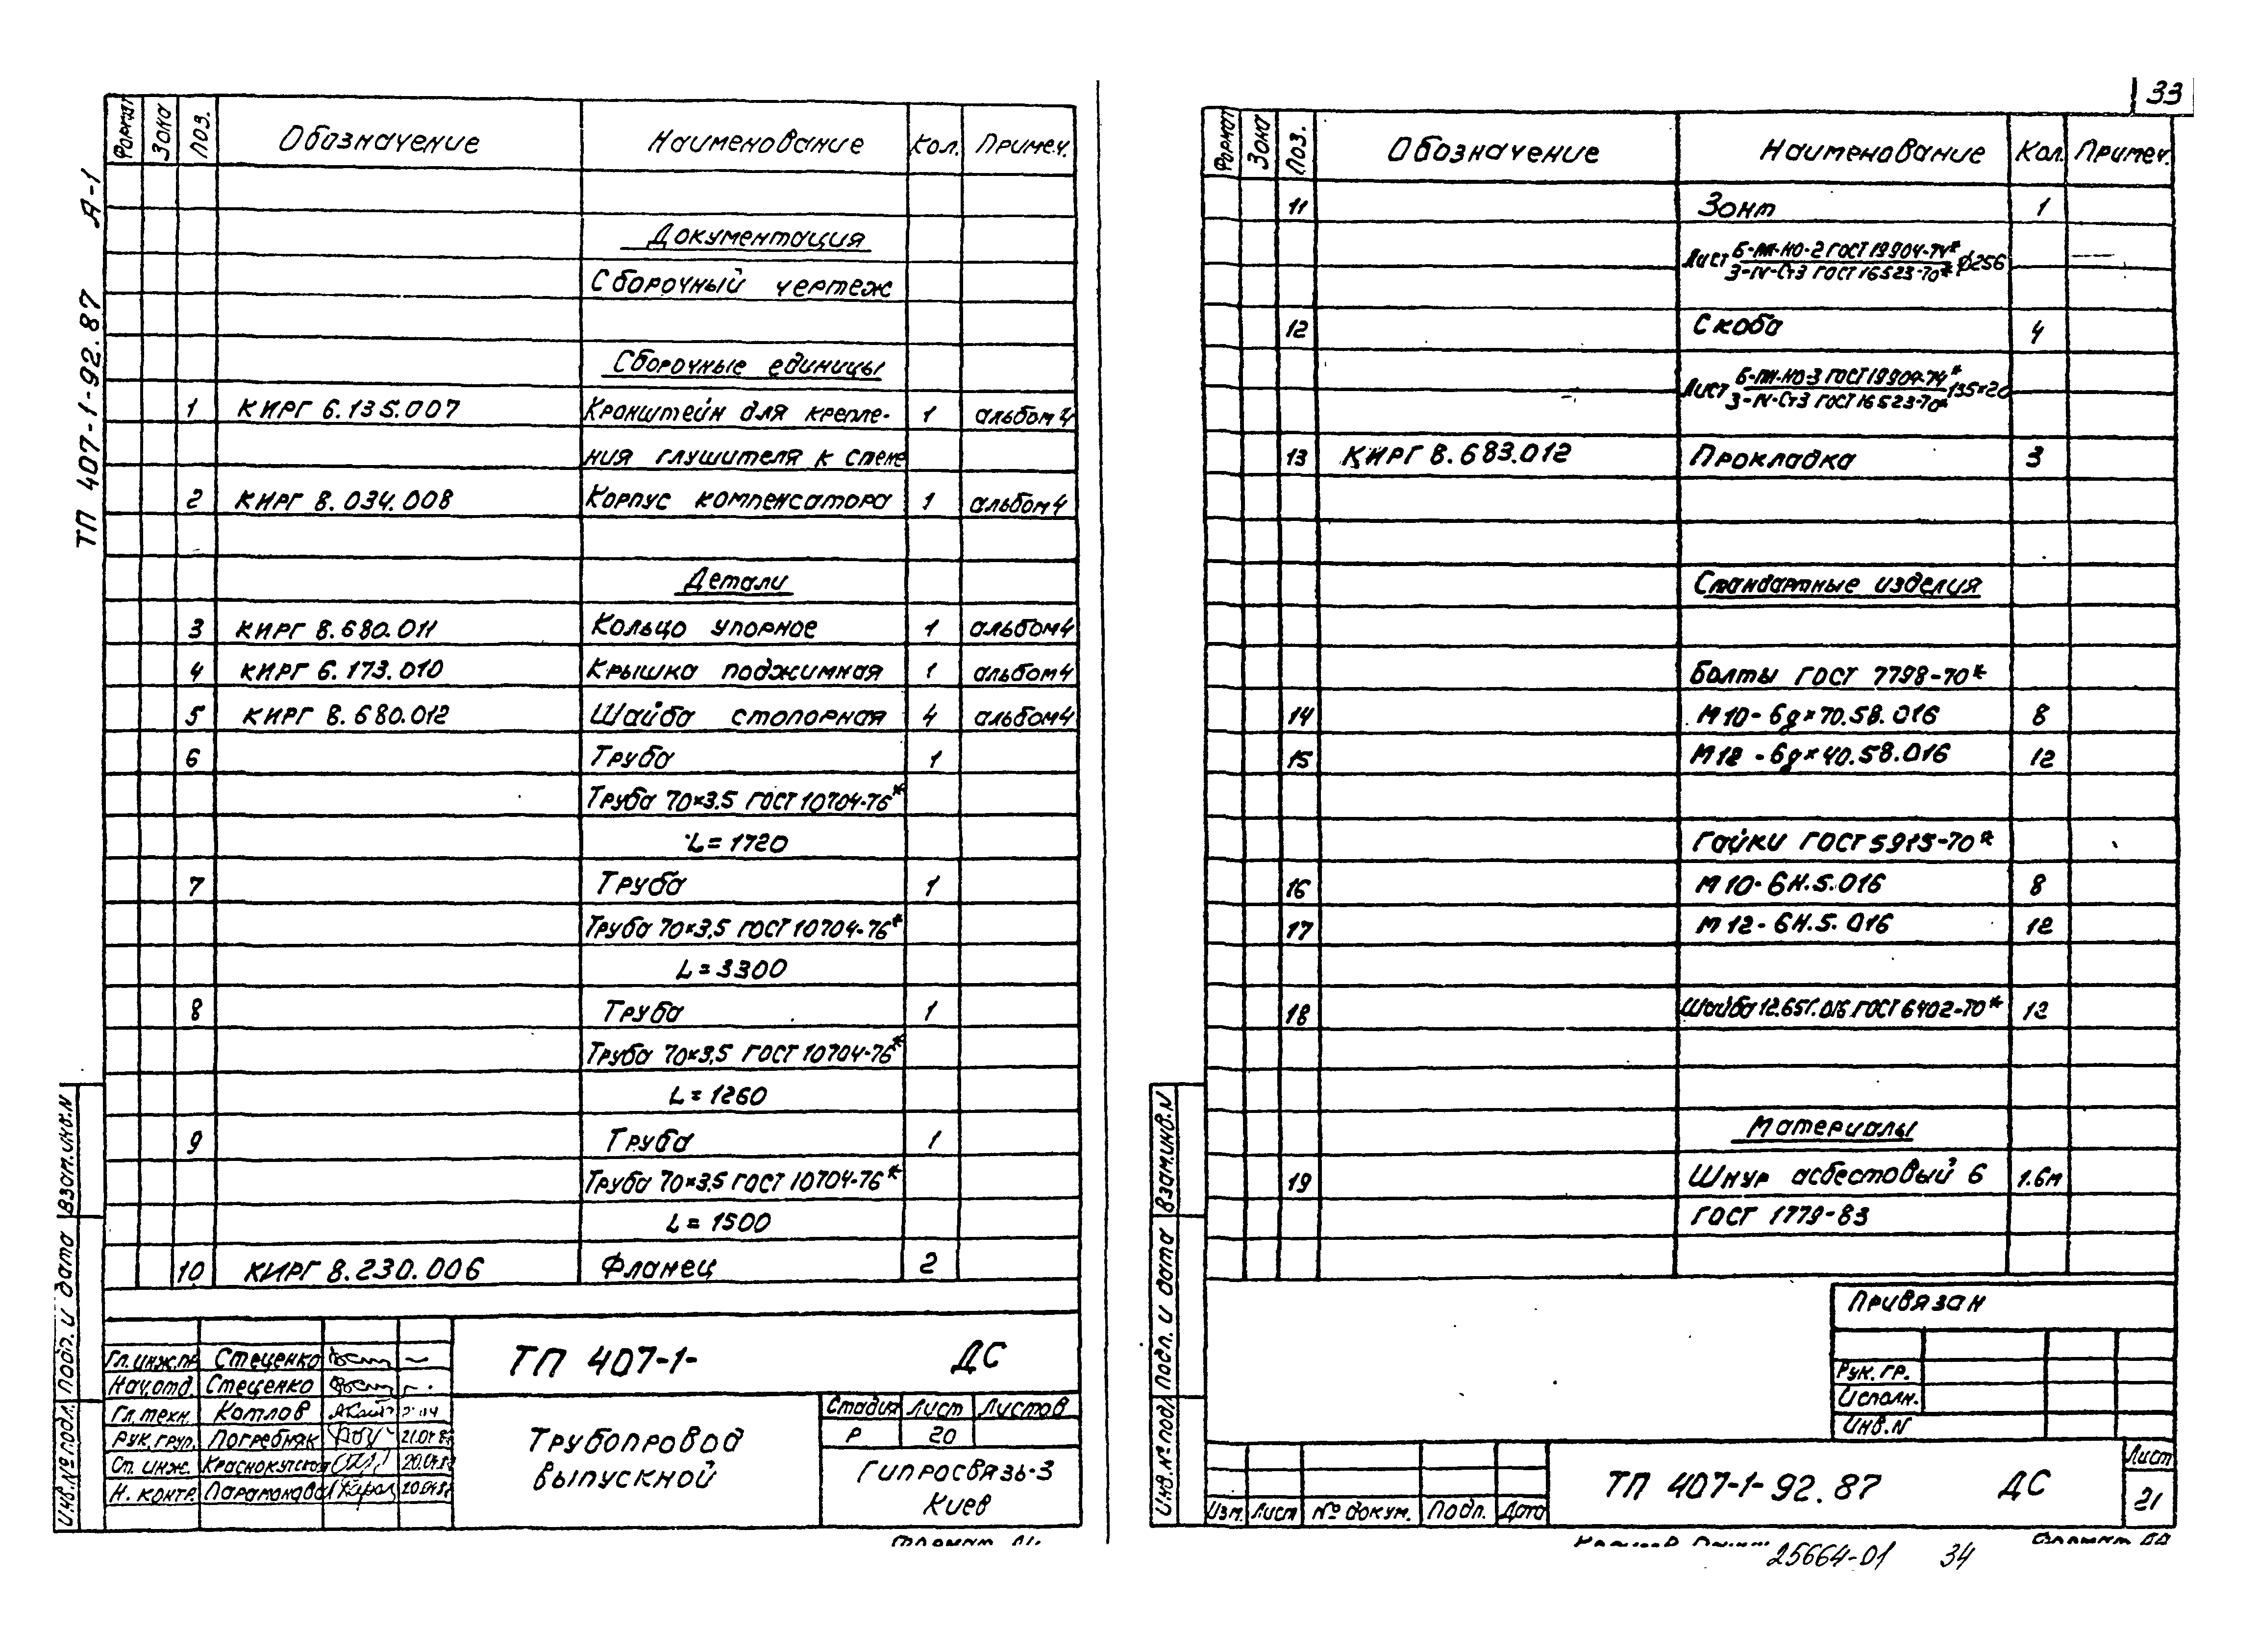 ТП 407-1-92.87 А-1
Формат Зона Поз. Обозначение Наименование Кол. Примеч.
Документация
Сборочный чертеж
Сборочные единицы
1 КИРГ 6.135.007 Кронштейн для крепле- 1 альбом 4
ния глушителя к стене
2 КИРГ 8.034.008 Корпус компенсатора 1 альбом 4
Детали
3 КИРГ 8.680.011 Кольцо упорное 1 альбом 4
4 КИРГ 6.173.010 Крышка поджимная 1 альбом 4
5 КИРГ 8.680.012 Шайба стопорная 4 альбом 4
6 Труба 1
Труба 70×3.5 ГОСТ 10704-76*
L=1720
7 Труба 1
Труба 70×3.5 ГОСТ 10704-76*
L=3300
8 Труба 1
Труба 70×3.5 ГОСТ 10704-76*
L=1260
9 Труба 1
Труба 70×3.5 ГОСТ 10704-76*
L=1500
10 КИРГ 8.230.006 Фланец 2
Взам.инв.N
Подп. и дата
Инв.№ подл.
Гл.инж.пр. Стеценко
Нач.отд. Стеценко
Гл.техн. Котлов
Рук.груп. Погребняк
Ст. инж. Краснокутская
Н. контр. Парамонова
ТП 407-1- ДС
Трубопровод
выпускной
Стадия Лист Листов
Р 20
Гипросвязь-3
Киев
33
Формат Зона Поз. Обозначение Наименование Кол. Примеч.
11 Зонт 1
Лист Б-ПН-НО-2 ГОСТ 19904-74* ϕ256
3-IV-Ст3 ГОСТ 16523-70*
12 Скоба 4
Лист Б-ПН-НО-3 ГОСТ 19904-74* 135×20
3-IV-Ст3 ГОСТ 16523-70*
13 КИРГ 8.683.012 Прокладка 3
Стандартные изделия
Болты ГОСТ 7798-70*
14 М10-6g×70.58.016 8
15 М12-6g×40.58.016 12
Гайки ГОСТ 5915-70*
16 М10-6Н.5.016 8
17 М12-6Н.5.016 12
18 Шайба 12.65Г.016 ГОСТ 6402-70* 12
Материалы
19 Шнур асбестовый 6 1.6м
ГОСТ 1779-83
Взам.инв.N
Подп. и дата
Инв.№ подл.
Привязан
Рук.гр.
Исполн.
Инв.N
Изм. Лист № докум. Подп. Дата
ТП 407-1-92.87 ДС
Лист
21
25664-01 34